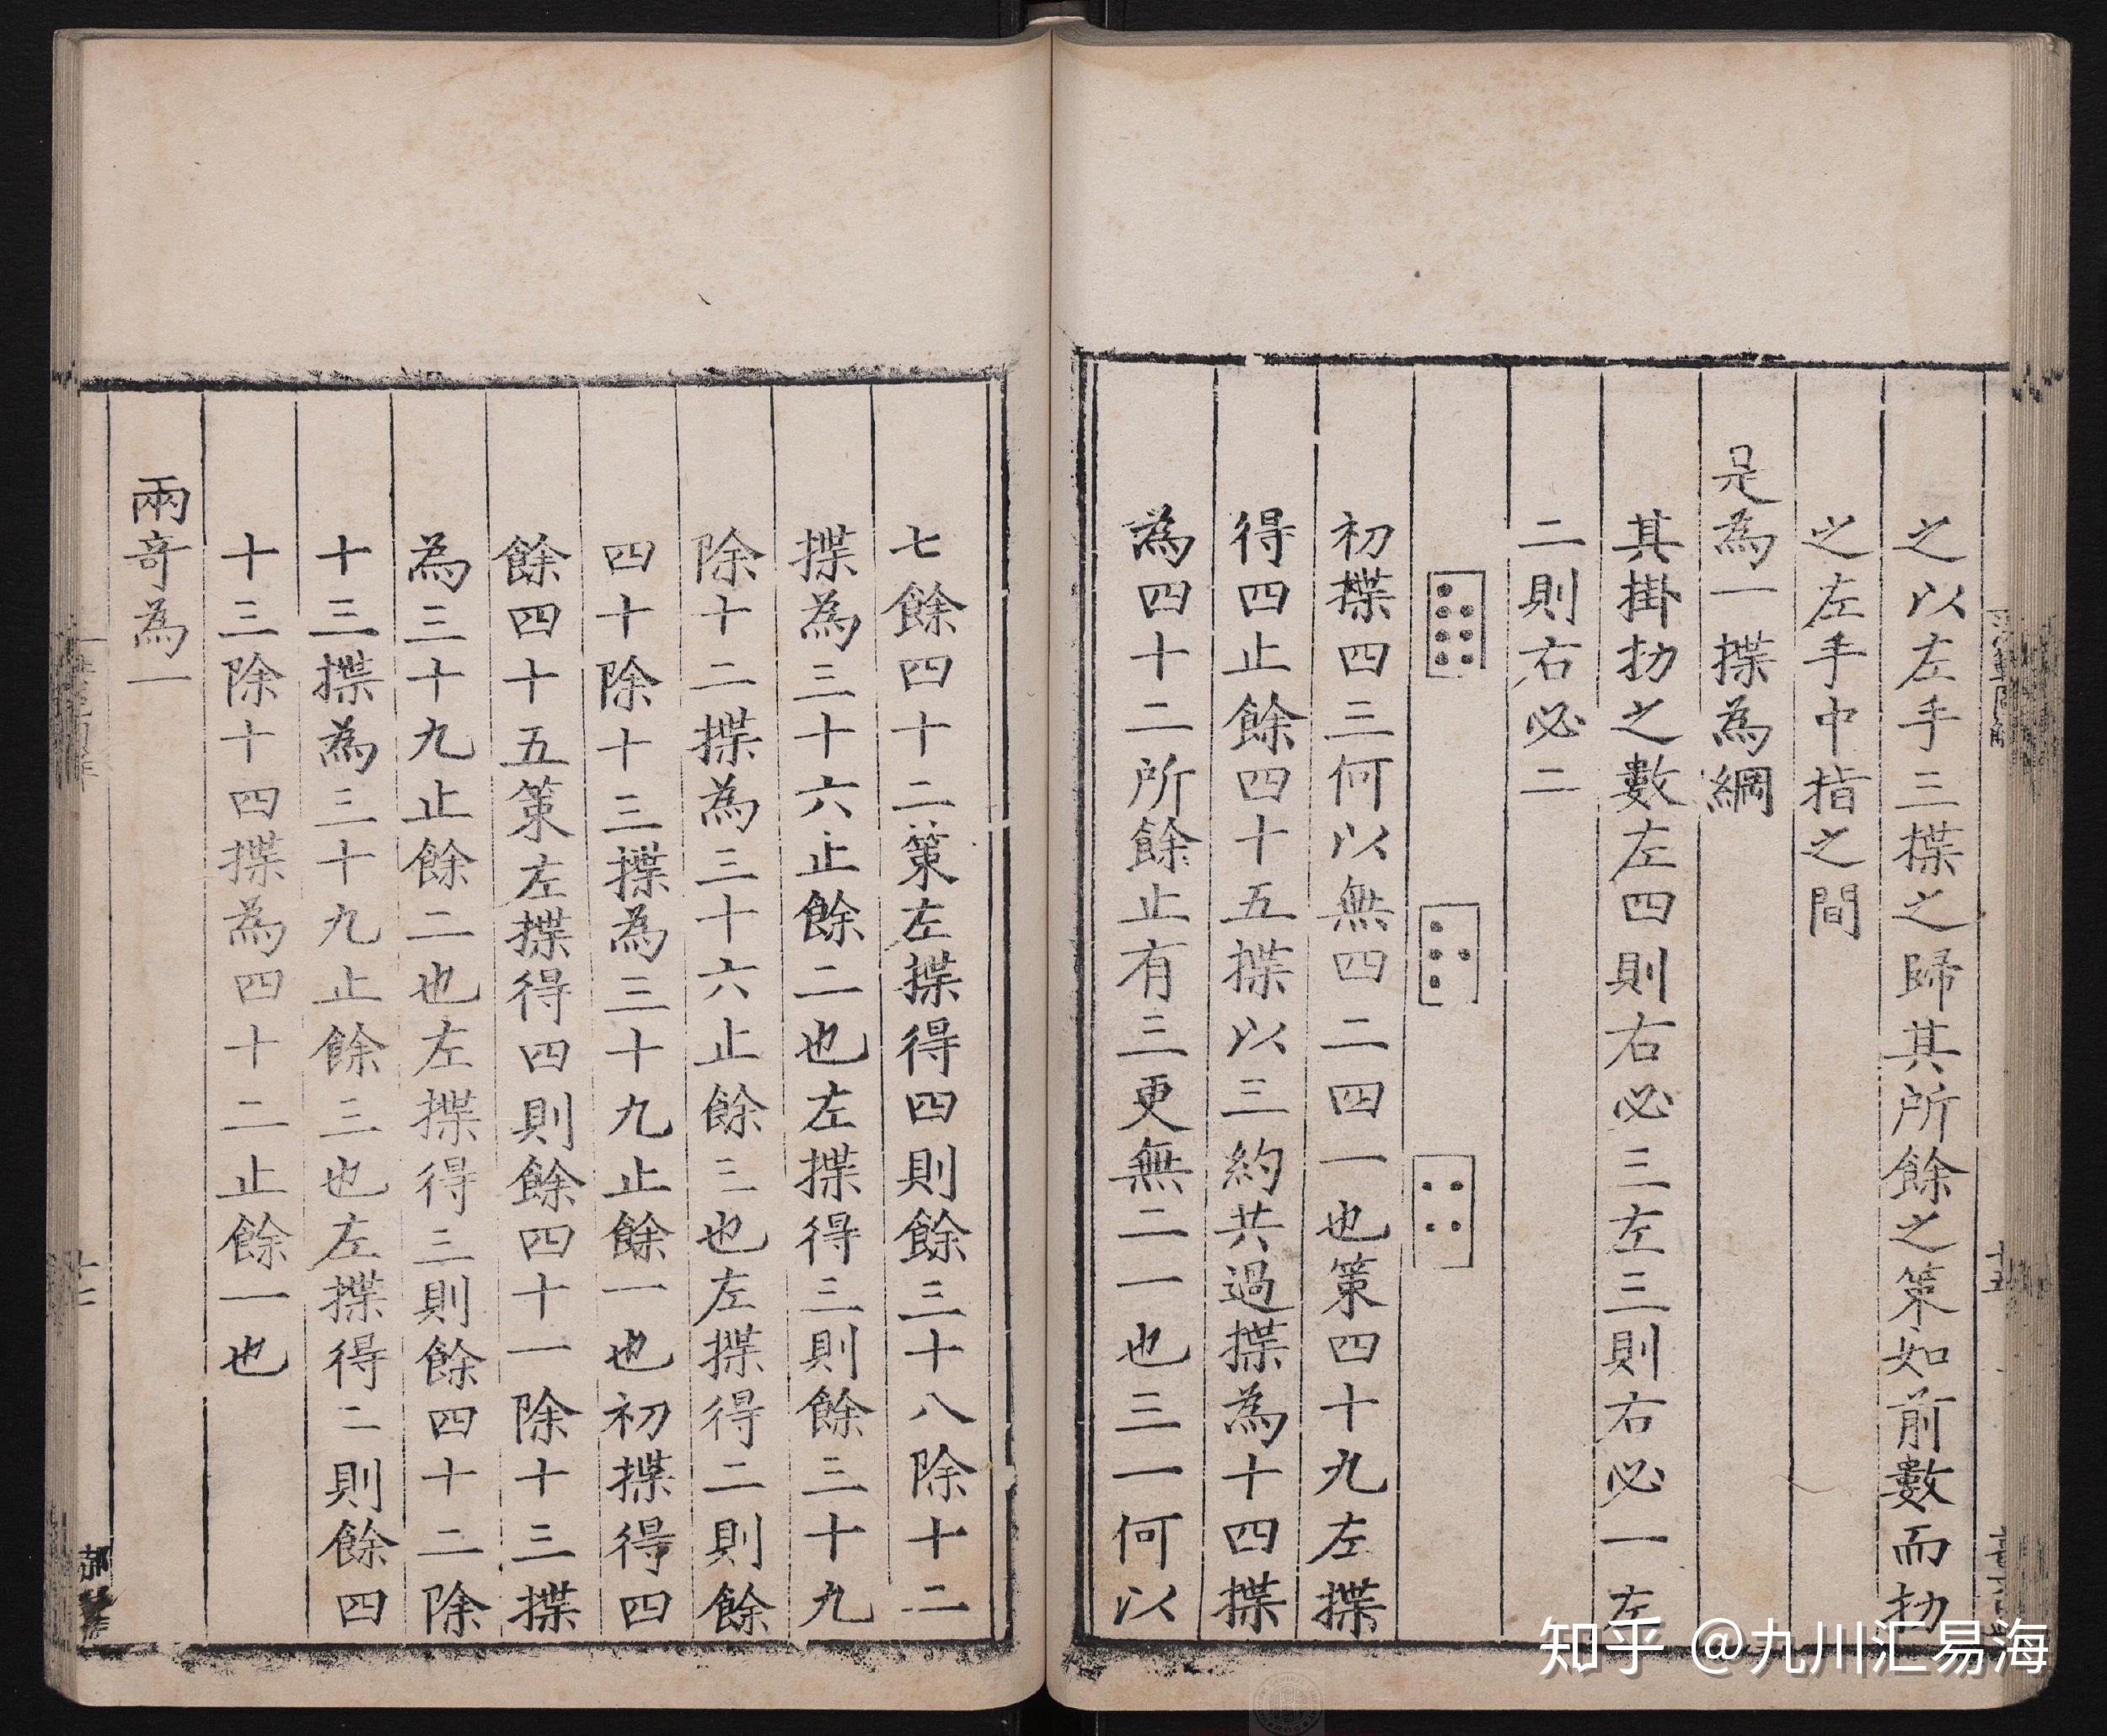 之以左手三揲之歸其所餘之策如前數而扐
之左手中指之間
是為一揲為綱
其掛扐之數左四則右必三左三則右必一左
二則右必二
初揲四三何以無四二四一也策四十九左揲
得四止餘四十五揲以三約共過揲為十四揲
為四十二所餘止有三更無二一也三一何以
七餘四十二策左揲得四則餘三十八除十二
揲為三十六止餘二也左揲得三則餘三十九
除十二揲為三十六止餘三也左揲得二則餘
四十除十三揲為三十九止餘一也初揲得四
餘四十五策左揲得四則餘四十一除十三揲
為三十九止餘二也左揲得三則餘四十二除
十三揲為三十九止餘三也左揲得二則餘四
十三除十四揲為四十二止餘一也
兩奇為一
知乎 @九川汇易海